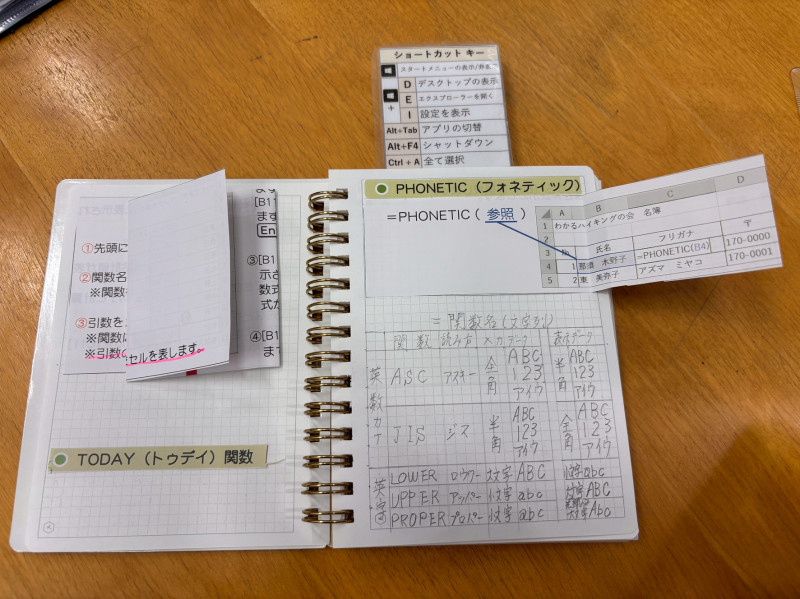 ショートカット キー
スタートメニューの表示/非表
D デスクトップの表示
E エクスプローラーを開く
+
I 設定を表示
Alt+Tab アプリの切替
Alt+F4 シャットダウン
Ctrl + A 全て選択
①先頭に
②関数名
※関数
③引数を
※関数に
※引数の
セルを表します。
[B11
ます
[En
③[B1
示さ
数式
式た
④[B1
まで
TODAY（トゥデイ）関数
PHONETIC（フォネティック）
=PHONETIC( 参照 )
A B C D
1 わかるハイキングの会 名簿
2
3 氏名 フリガナ 〒
4 1 那須 木野子 =PHONETIC(B4) 170-0000
5 2 東 美弥子 アズマ ミヤコ 170-0001
=関数名(文字列)
関数 読み方 入力データ 表示データ
英数カナ
ASC アスキー 全角 ABC 123 アイウ 半角 ABC 123 アイウ
JIS ジス 半角 ABC 123 アイウ 全角 ABC 123 アイウ
英字
LOWER ロウワー 大文字 ABC 小文字 abc
UPPER アッパー 小文字 abc 大文字 ABC
PROPER プロパー 小文字 abc 大文字 Abc